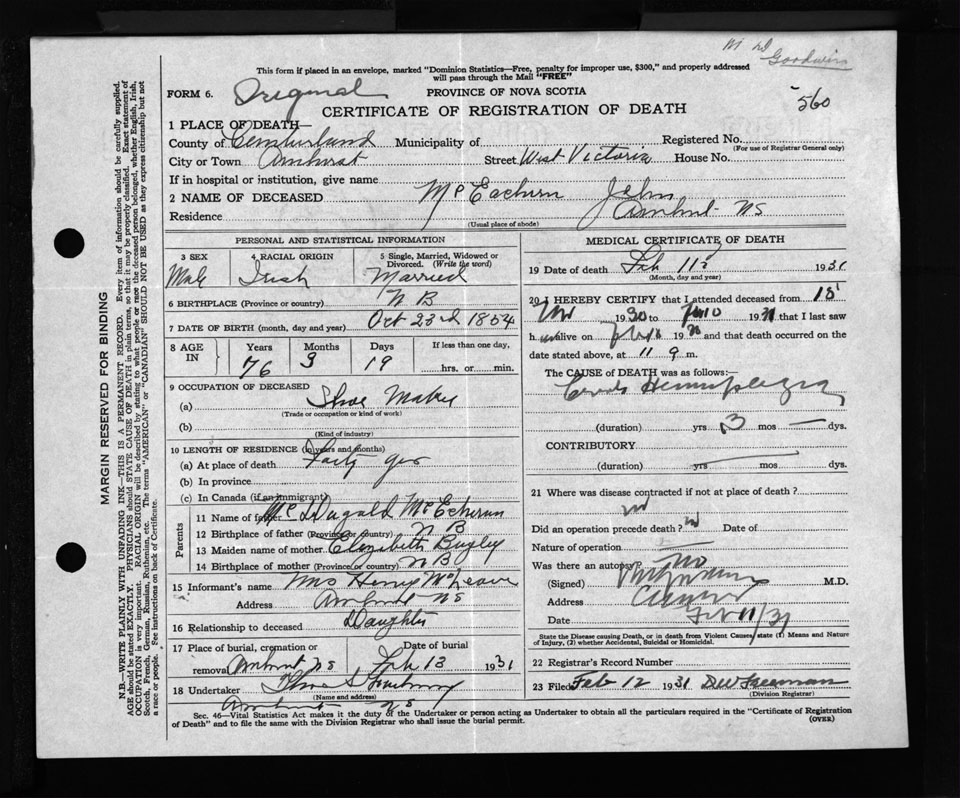 Goodwin
This form if placed in an envelope, marked "Dominion Statistics—Free, penalty for improper use, $300," and properly addressed
will pass through the Mail "FREE"
FORM 6. Original PROVINCE OF NOVA SCOTIA
CERTIFICATE OF REGISTRATION OF DEATH 560
1 PLACE OF DEATH—
County of Cumberland Municipality of Registered No.
(For use of Registrar General only)
City or Town Amherst Street West Victoria House No.
If in hospital or institution, give name
2 NAME OF DECEASED McEachern John
Residence Amherst NS
(Usual place of abode)
PERSONAL AND STATISTICAL INFORMATION
3 SEX 4 RACIAL ORIGIN 5 Single, Married, Widowed or
Divorced. (Write the word)
Male Irish Married
6 BIRTHPLACE (Province or country) N B
7 DATE OF BIRTH (month, day and year) Oct 23rd 1854
8 AGE IN Years Months Days If less than one day,
76 3 19 hrs. or min.
9 OCCUPATION OF DECEASED
(a) Shoe Maker
(Trade or occupation or kind of work)
(b)
(Kind of industry)
10 LENGTH OF RESIDENCE (in years and months)
(a) At place of death Forty yrs
(b) In province
(c) In Canada (if an immigrant)
Parents
11 Name of father Dugald McEchern
12 Birthplace of father (Province or country) N B
13 Maiden name of mother Elizabeth Bagley
14 Birthplace of mother (Province or country) N B
15 Informant's name Mrs Henry McLeave
Address Amherst NS
16 Relationship to deceased Daughter
17 Place of burial, cremation or Date of burial
removal Amherst NS Feb 13 1931
18 Undertaker
(Name and address)
Amherst NS
MEDICAL CERTIFICATE OF DEATH
19 Date of death Feb 11 1931
(Month, day and year)
20 I HEREBY CERTIFY that I attended deceased from 15
1930 to that I last saw
h alive on and that death occurred on the
date stated above, at 11 m.
The CAUSE OF DEATH was as follows:—
Hemiplegia
(duration) yrs 3 mos — dys.
CONTRIBUTORY
(duration) yrs mos dys.
21 Where was disease contracted if not at place of death?
Did an operation precede death? Date of
Nature of operation
Was there an autopsy? no
(Signed) M.D.
Address
Date Feb 11/31
State the Disease causing Death, or in death from Violent Causes, state (1) Means and Nature
of Injury, (2) whether Accidental, Suicidal or Homicidal.
22 Registrar's Record Number
23 Filed Feb 12 1931 DW Freeman
(Division Registrar)
Sec. 46—Vital Statistics Act makes it the duty of the Undertaker or person acting as Undertaker to obtain all the particulars required in the "Certificate of Registration
of Death" and to file the same with the Division Registrar who shall issue the burial permit. (OVER)
MARGIN RESERVED FOR BINDING
N.B.—WRITE PLAINLY WITH UNFADING INK—THIS IS A PERMANENT RECORD. Every item of information should be carefully supplied.
AGE should be stated EXACTLY. PHYSICIANS should STATE CAUSE OF DEATH in plain terms, so that it may be properly classified. Exact statement of
OCCUPATION is very important. RACIAL ORIGIN will be described by stating to what people or race the deceased person belonged, whether English, Irish,
Scotch, French, German, Russian, Ruthenian, etc. The terms "AMERICAN" or "CANADIAN" SHOULD NOT BE USED as they express citizenship but not
a race or people. See instructions on back of Certificate.